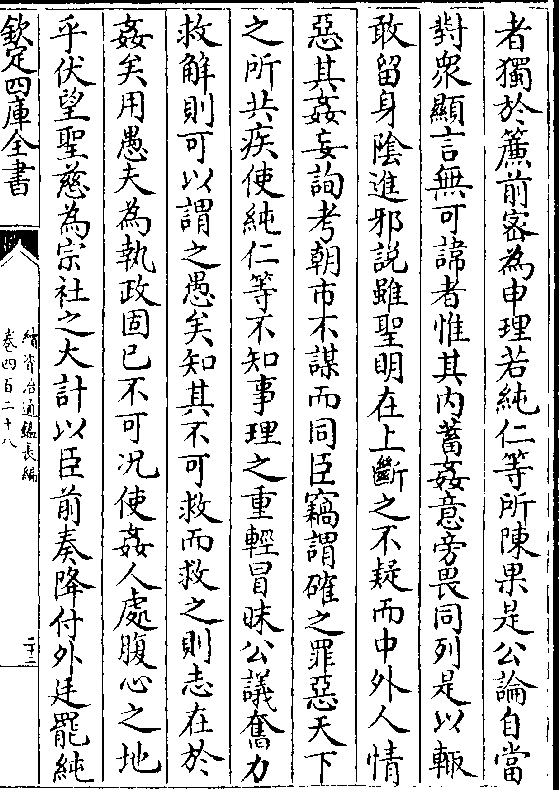 者獨於簾前密為申理若純仁等所陳果是公論自當
對衆顯言無可諱者惟其内蓄姦意旁畏同列是以輙
敢留身隂進邪説雖聖明在上斷之不疑而中外人情
惡其姦妄詢考朝市不謀而同臣竊謂確之罪惡天下
之所共疾使純仁等不知事理之重輕冒昧公議奮力
救解則可以謂之愚矣知其不可救而救之則志在於
姦矣用愚夫為執政固已不可况使姦人處腹心之地
乎伏望聖慈為宗社之大計以臣前奏降付外廷罷純
欽定四庫全書
續資治通鑑長編
卷四百二十八
二十二